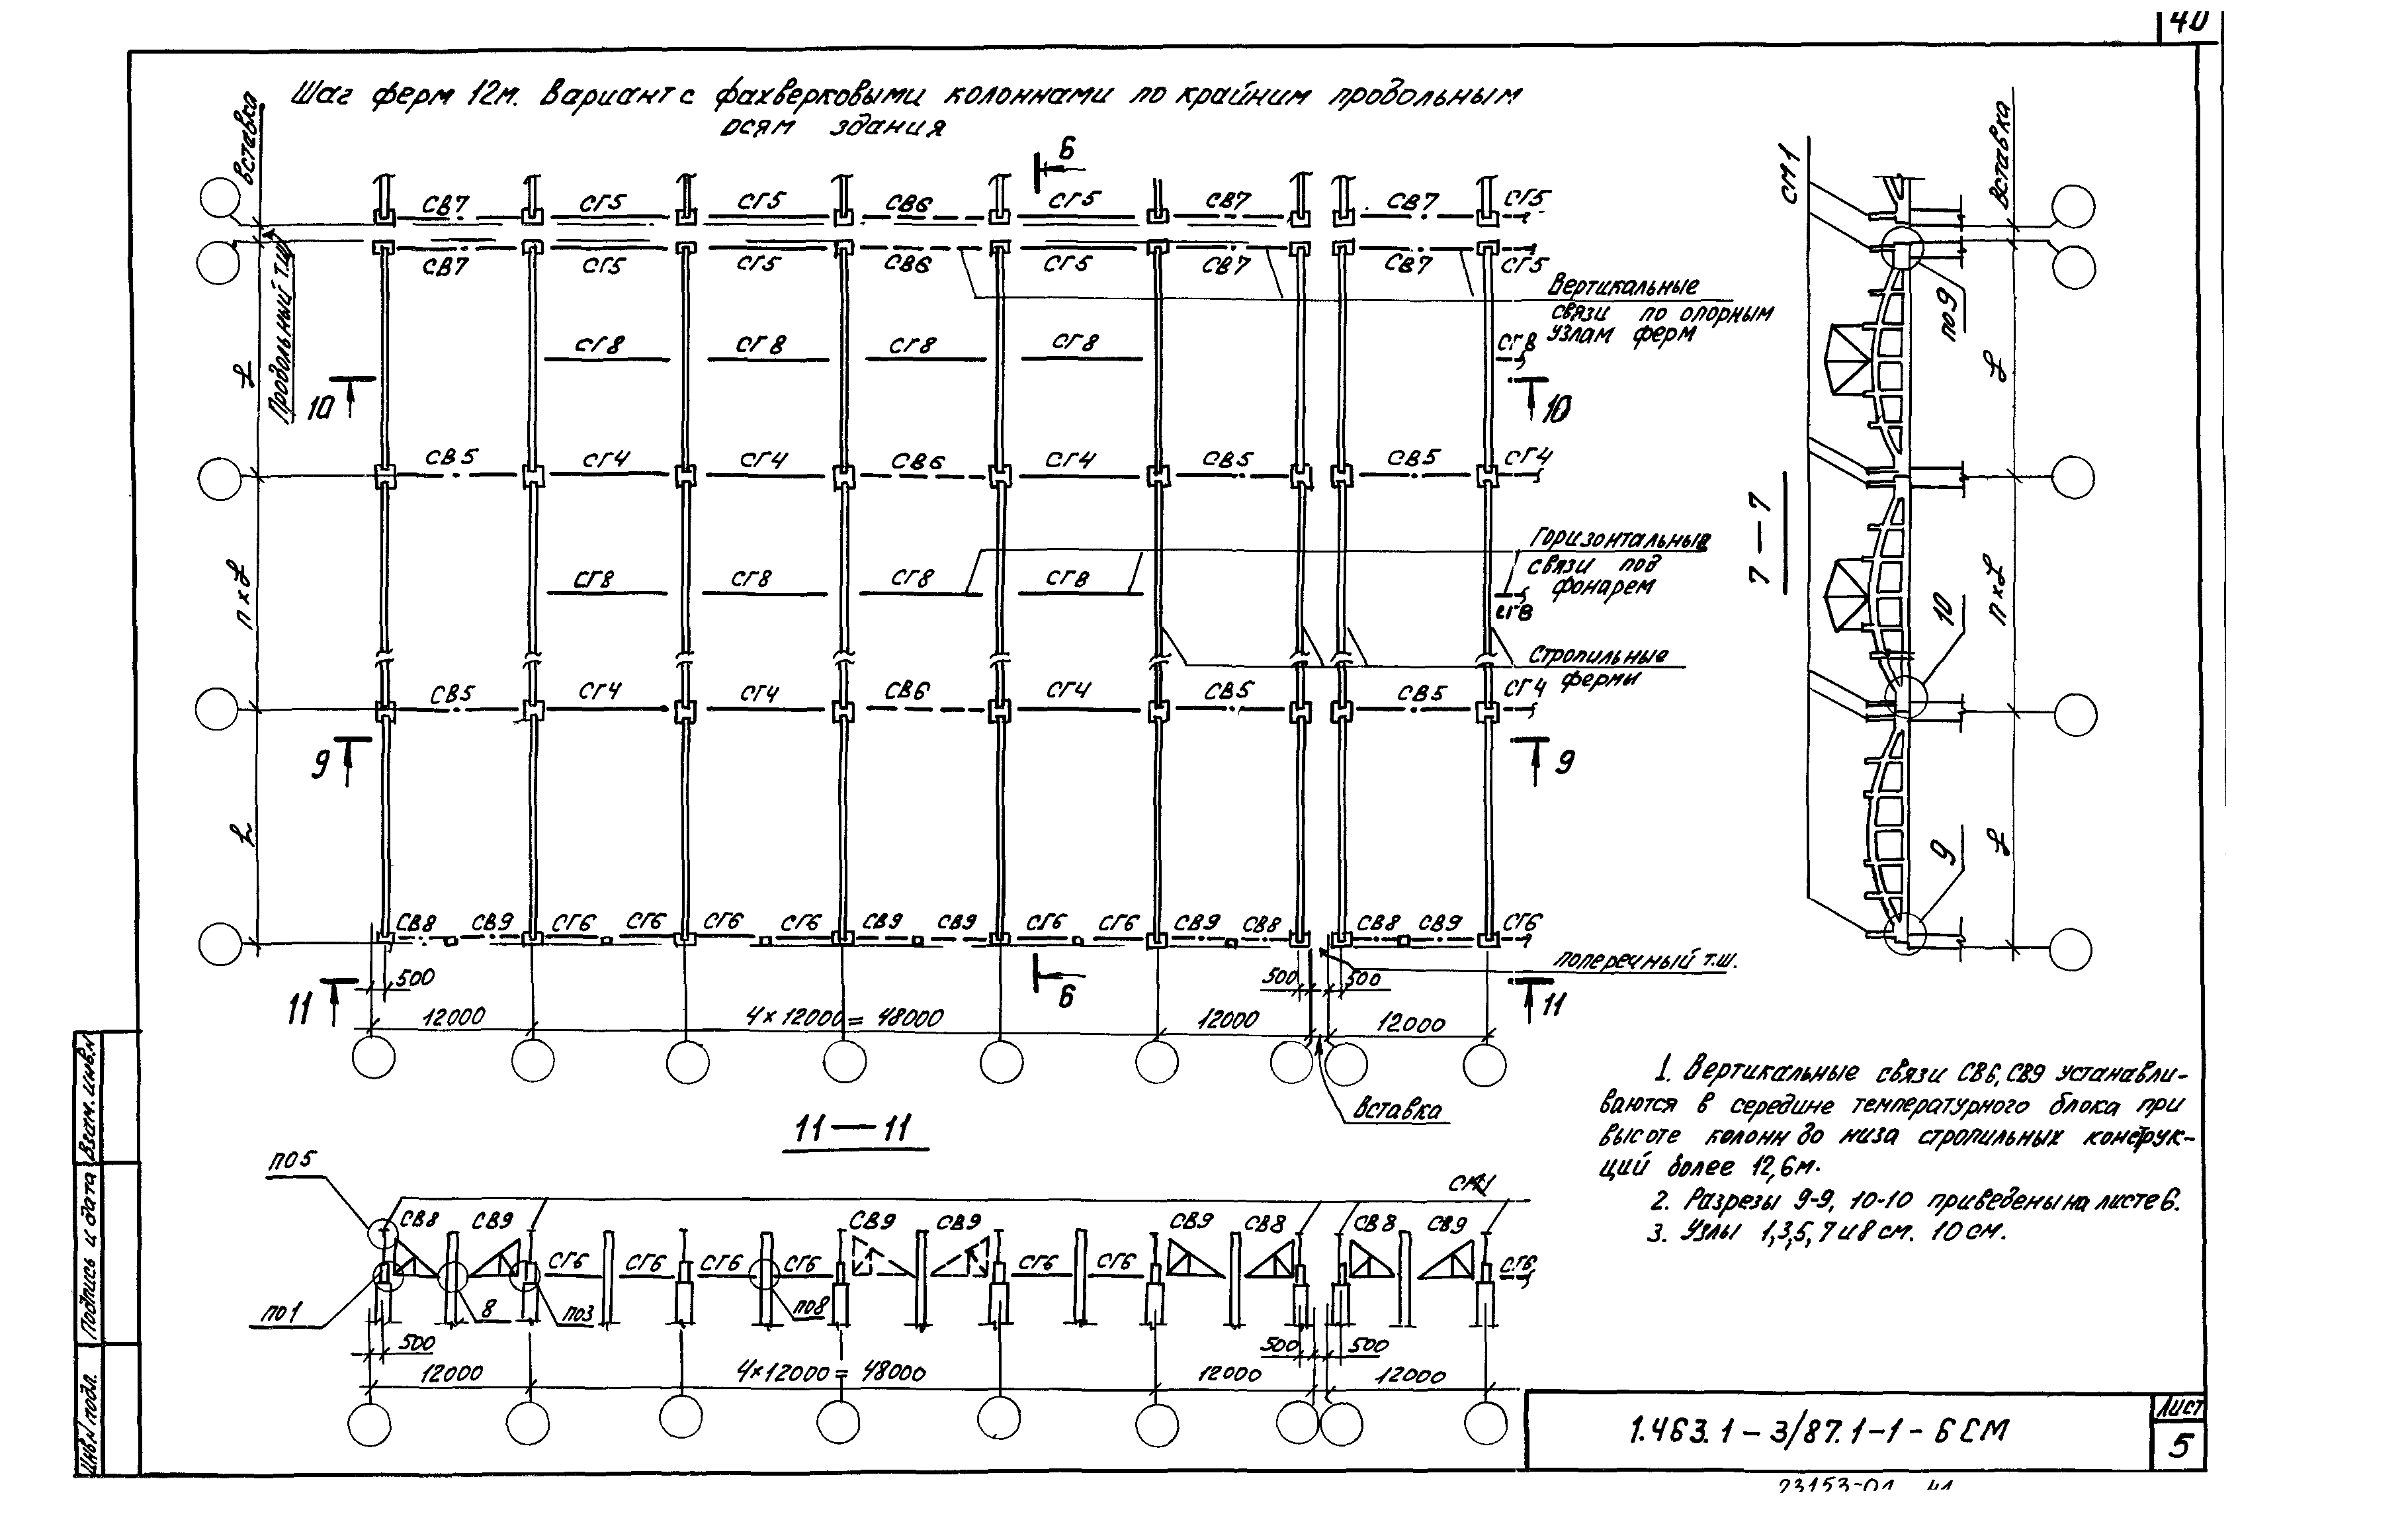 40
Шаг ферм 12м. Вариант с фахверковыми колоннами по крайним продольным
осям здания
вставка
Продольный т.ш.
L
n×L
L
6
СВ7 СГ5 СГ5 СВ6 СГ5 СВ7 СВ7 СГ5
СВ7 СГ5 СГ5 СВ6 СГ5 СВ7 СВ7 СГ5
Вертикальные
связи по опорным
узлам ферм
СГ8 СГ8 СГ8 СГ8 СГ8
10 10
СВ5 СГ4 СГ4 СВ6 СГ4 СВ5 СВ5 СГ4
Горизонтальные
связи под
фонарем
СГ8 СГ8 СГ8 СГ8 СГ8
Стропильные
фермы
СВ5 СГ4 СГ4 СВ6 СГ4 СВ5 СВ5 СГ4
9 9
СВ8 СВ9 СГ6 СГ6 СГ6 СГ6 СВ9 СВ9 СГ6 СГ6 СВ9 СВ8 СВ8 СВ9 СГ6
поперечный т.ш.
500 500 500
11 6 11
12000 4×12000=48000 12000 12000
Вставка
7—7
СМ1
вставка
по9
L
n×L
10
L
9
11—11
по5
СМ1
СВ8 СВ9 СВ9 СВ9 СВ9 СВ8 СВ8 СВ9
СГ6 СГ6 СГ6 СГ6 СГ6 СГ6 СГ6
по1 8 по3 по8
500 500 500
12000 4×12000=48000 12000 12000
1. Вертикальные связи СВ6, СВ9 устанавли-
ваются в середине температурного блока при
высоте колонн до низа стропильных конструк-
ций более 12,6м.
2. Разрезы 9-9, 10-10 приведены на листе 6.
3. Узлы 1,3,5,7 и 8 см. 10 см.
Инв.№ подл. Подпись и дата Взам.инв.№
1.463.1-3/87.1-1-6СМ
Лист
5
23153-01 41